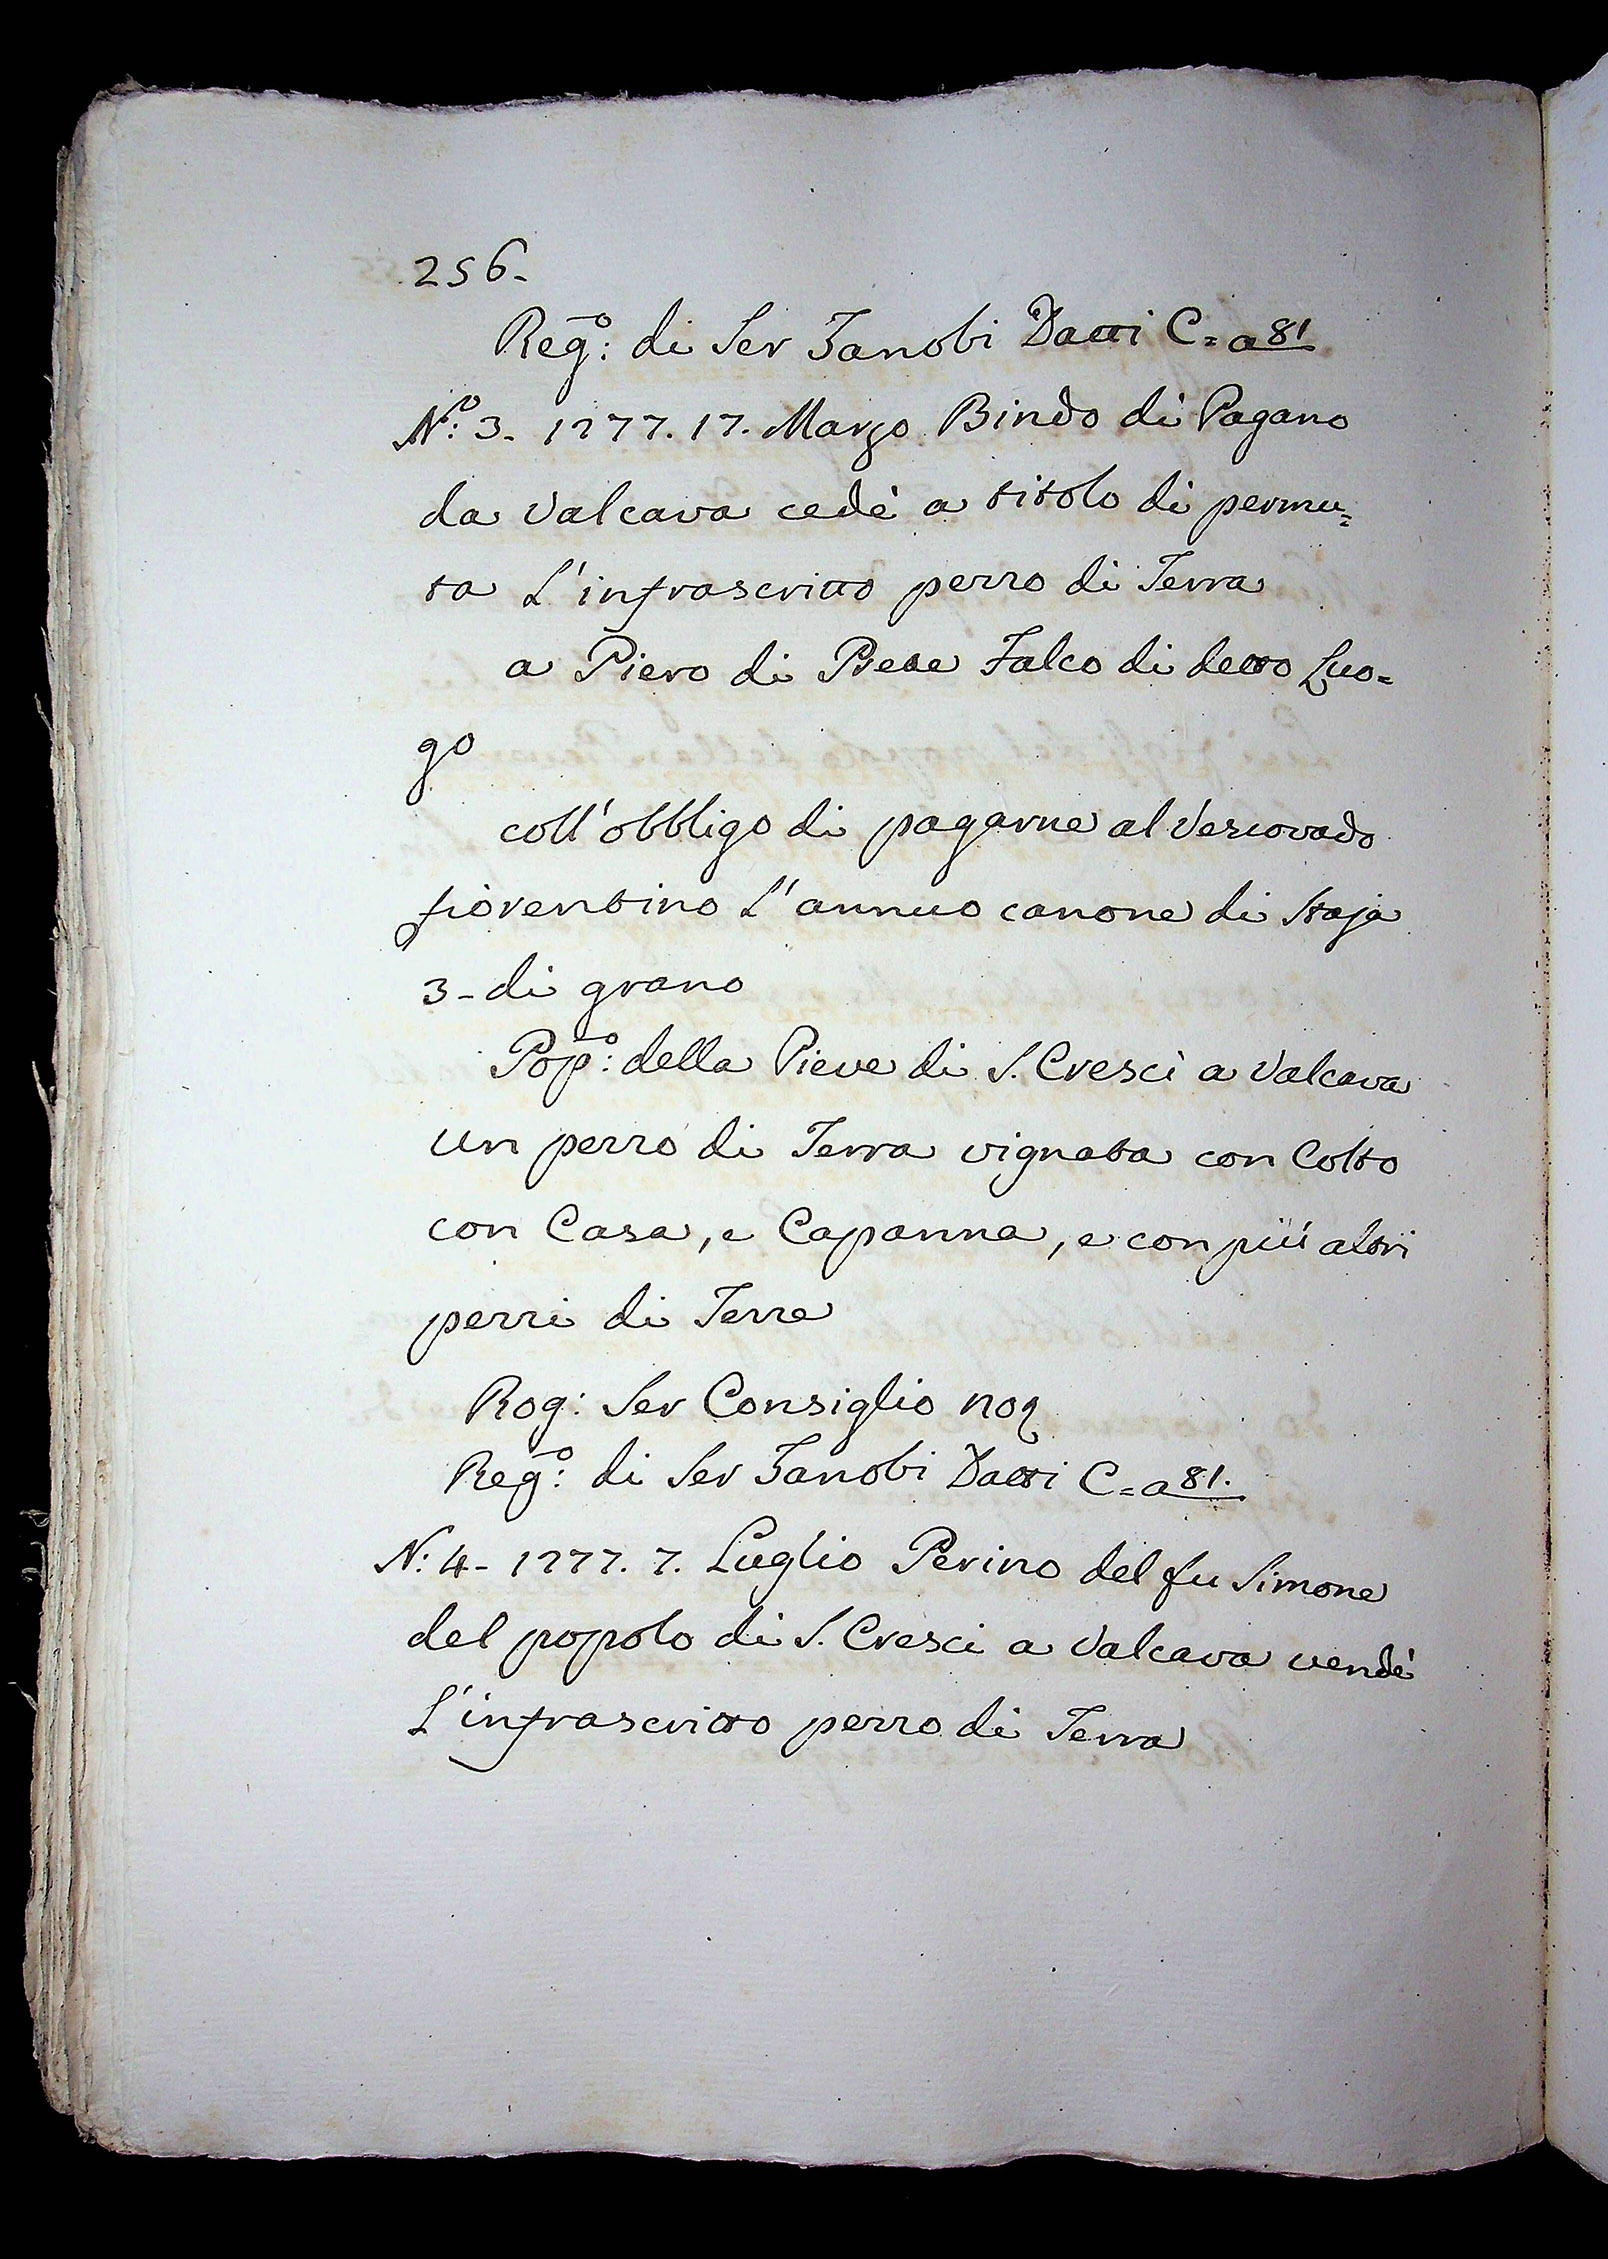 256.
Reg.º: di Ser Zanobi Datti C=a 81
N.º: 3. 1277. 17. Marzo Bindo di Pagano
da Valcava cedè a titolo di permu=
ta L'infrascritto pezzo di Terra
a Piero di Prete Falco di detto Luo=
go
coll'obbligo di pagarne al Vescovado
fiorentino L'annuo canone di Staja
3- di grano
Pop.º: della Pieve di S. Cresci a Valcava
un pezzo di Terra vignata con Colto
con Casa, e Capanna, e con più altri
pezzi di Terre
Rog: Ser Consiglio noq
Reg.º: di Ser Zanobi Datti C=a 81.
N: 4- 1277. 7. Luglio Perino del fu Simone
del popolo di S. Cresci a Valcava vendè
L'infrascritto pezzo di Terra